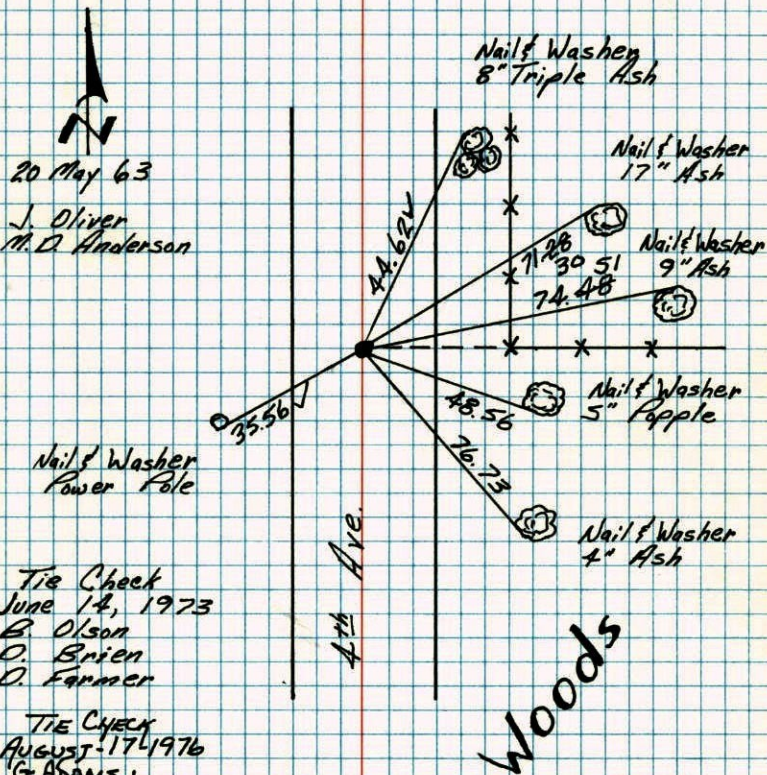 N
20 May 63
J. Oliver
M.D. Anderson
Nail & Washer
8" Triple Ash
Nail & Washer
17" Ash
Nail & Washer
9" Ash
44.62 ✓
71.28
30 51
74.48
48.56
Nail & Washer
5" Popple
76.73
Nail & Washer
4" Ash
35.56 ✓
Nail & Washer
Power Pole
4th Ave.
Woods
Tie Check
June 14, 1973
B. Olson
O. Brien
D. Farmer
TIE CHECK
AUGUST-17-1976
G. ADAMS